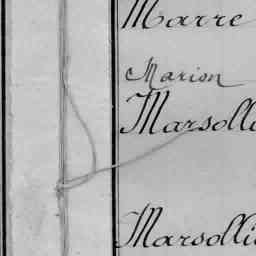 Marre
Marion
Marsolli
Marsollie